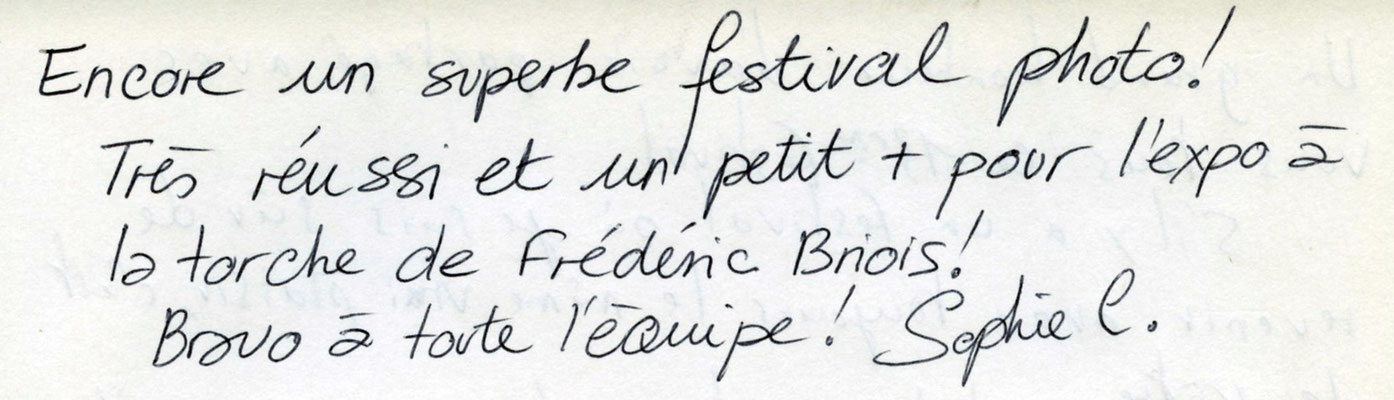 Encore un superbe festival photo!
Très réussi et un petit + pour l'expo à
la torche de Frédéric Briois!
Bravo à toute l'équipe! Sophie C.